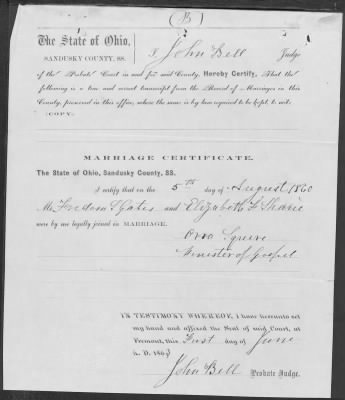 (B)
The State of Ohio,
SANDUSKY COUNTY, SS.
I John Bell Judge
of the Probate Court in and for said County, Hereby Certify, That the
following is a true and correct transcript from the Record of Marriages in this
County, preserved in this office, where the same is by law required to be kept, to wit:
(COPY.)
MARRIAGE CERTIFICATE.
The State of Ohio, Sandusky County, SS.
I certify that on the 5th day of August 1860
Mr Freedom S Gates and Elizabeth F
were by me legally joined in MARRIAGE.
Minister of Gospel
IN TESTIMONY WHEREOF, I have hereunto set
my hand and affixed the Seal of said Court, at
Fremont, this First day of June
A. D. 186
John Bell Probate Judge.